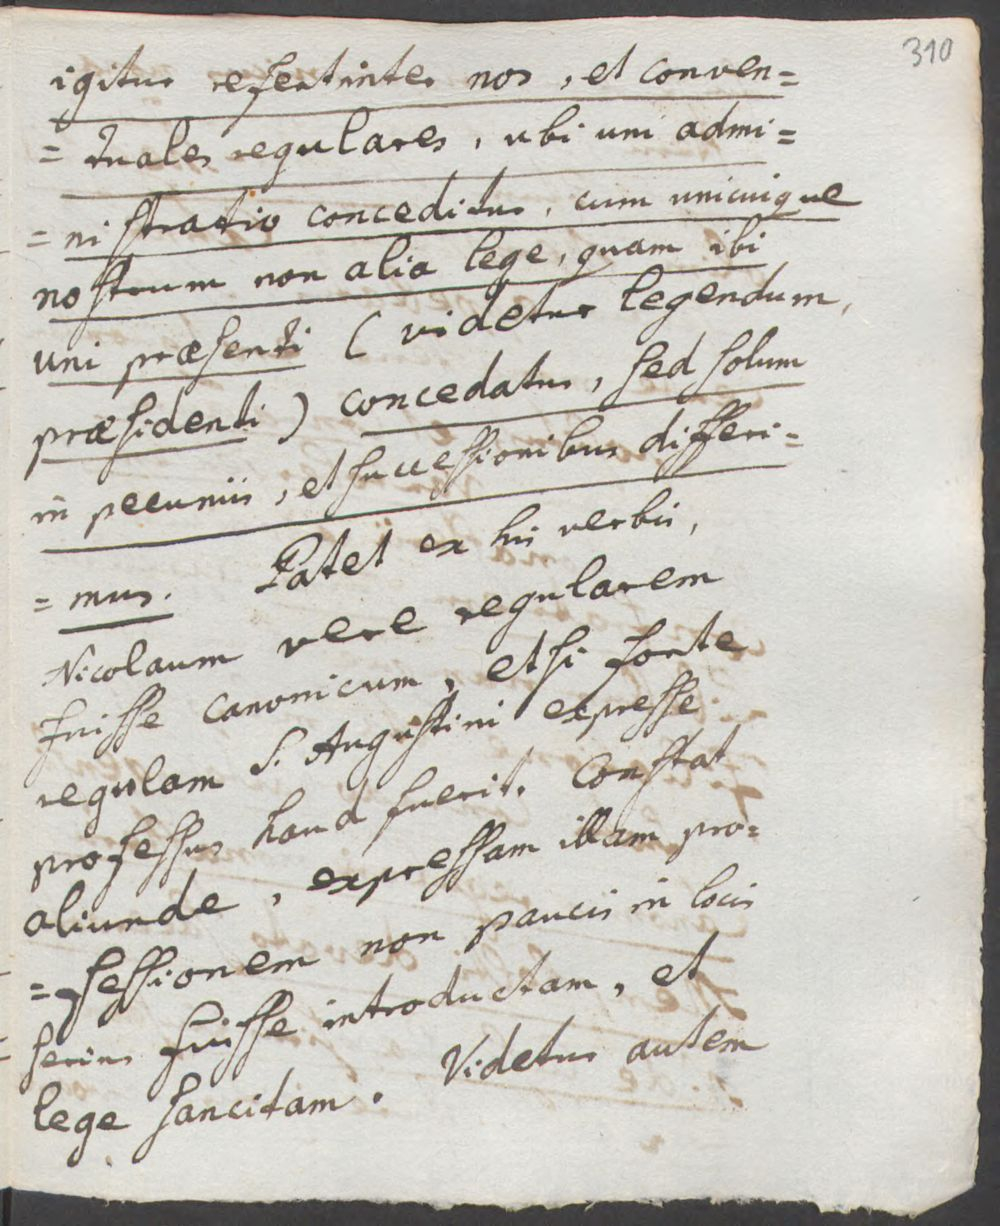 310
igitur refert inter nos, et conven=
=tuales regulares, ubi uni admi=
=nistratio conceditur, cum unicuique
nostrum non alia lege, quam ibi
uni præsenti (videtur legendum,
præsidenti) concedatur, sed solum
in pecuniis, et successionibus differi=
=mus. Patet ex his verbis,
Nicolaum vere regularem
fuisse canonicum, etsi forte
regulam S. Augustini expresse
professus haud fuerit. Constat
aliunde, expressam illam pro=
=fessionem non paucis in locis
serius fuisse introductam, et
lege sancitam. Videtur autem